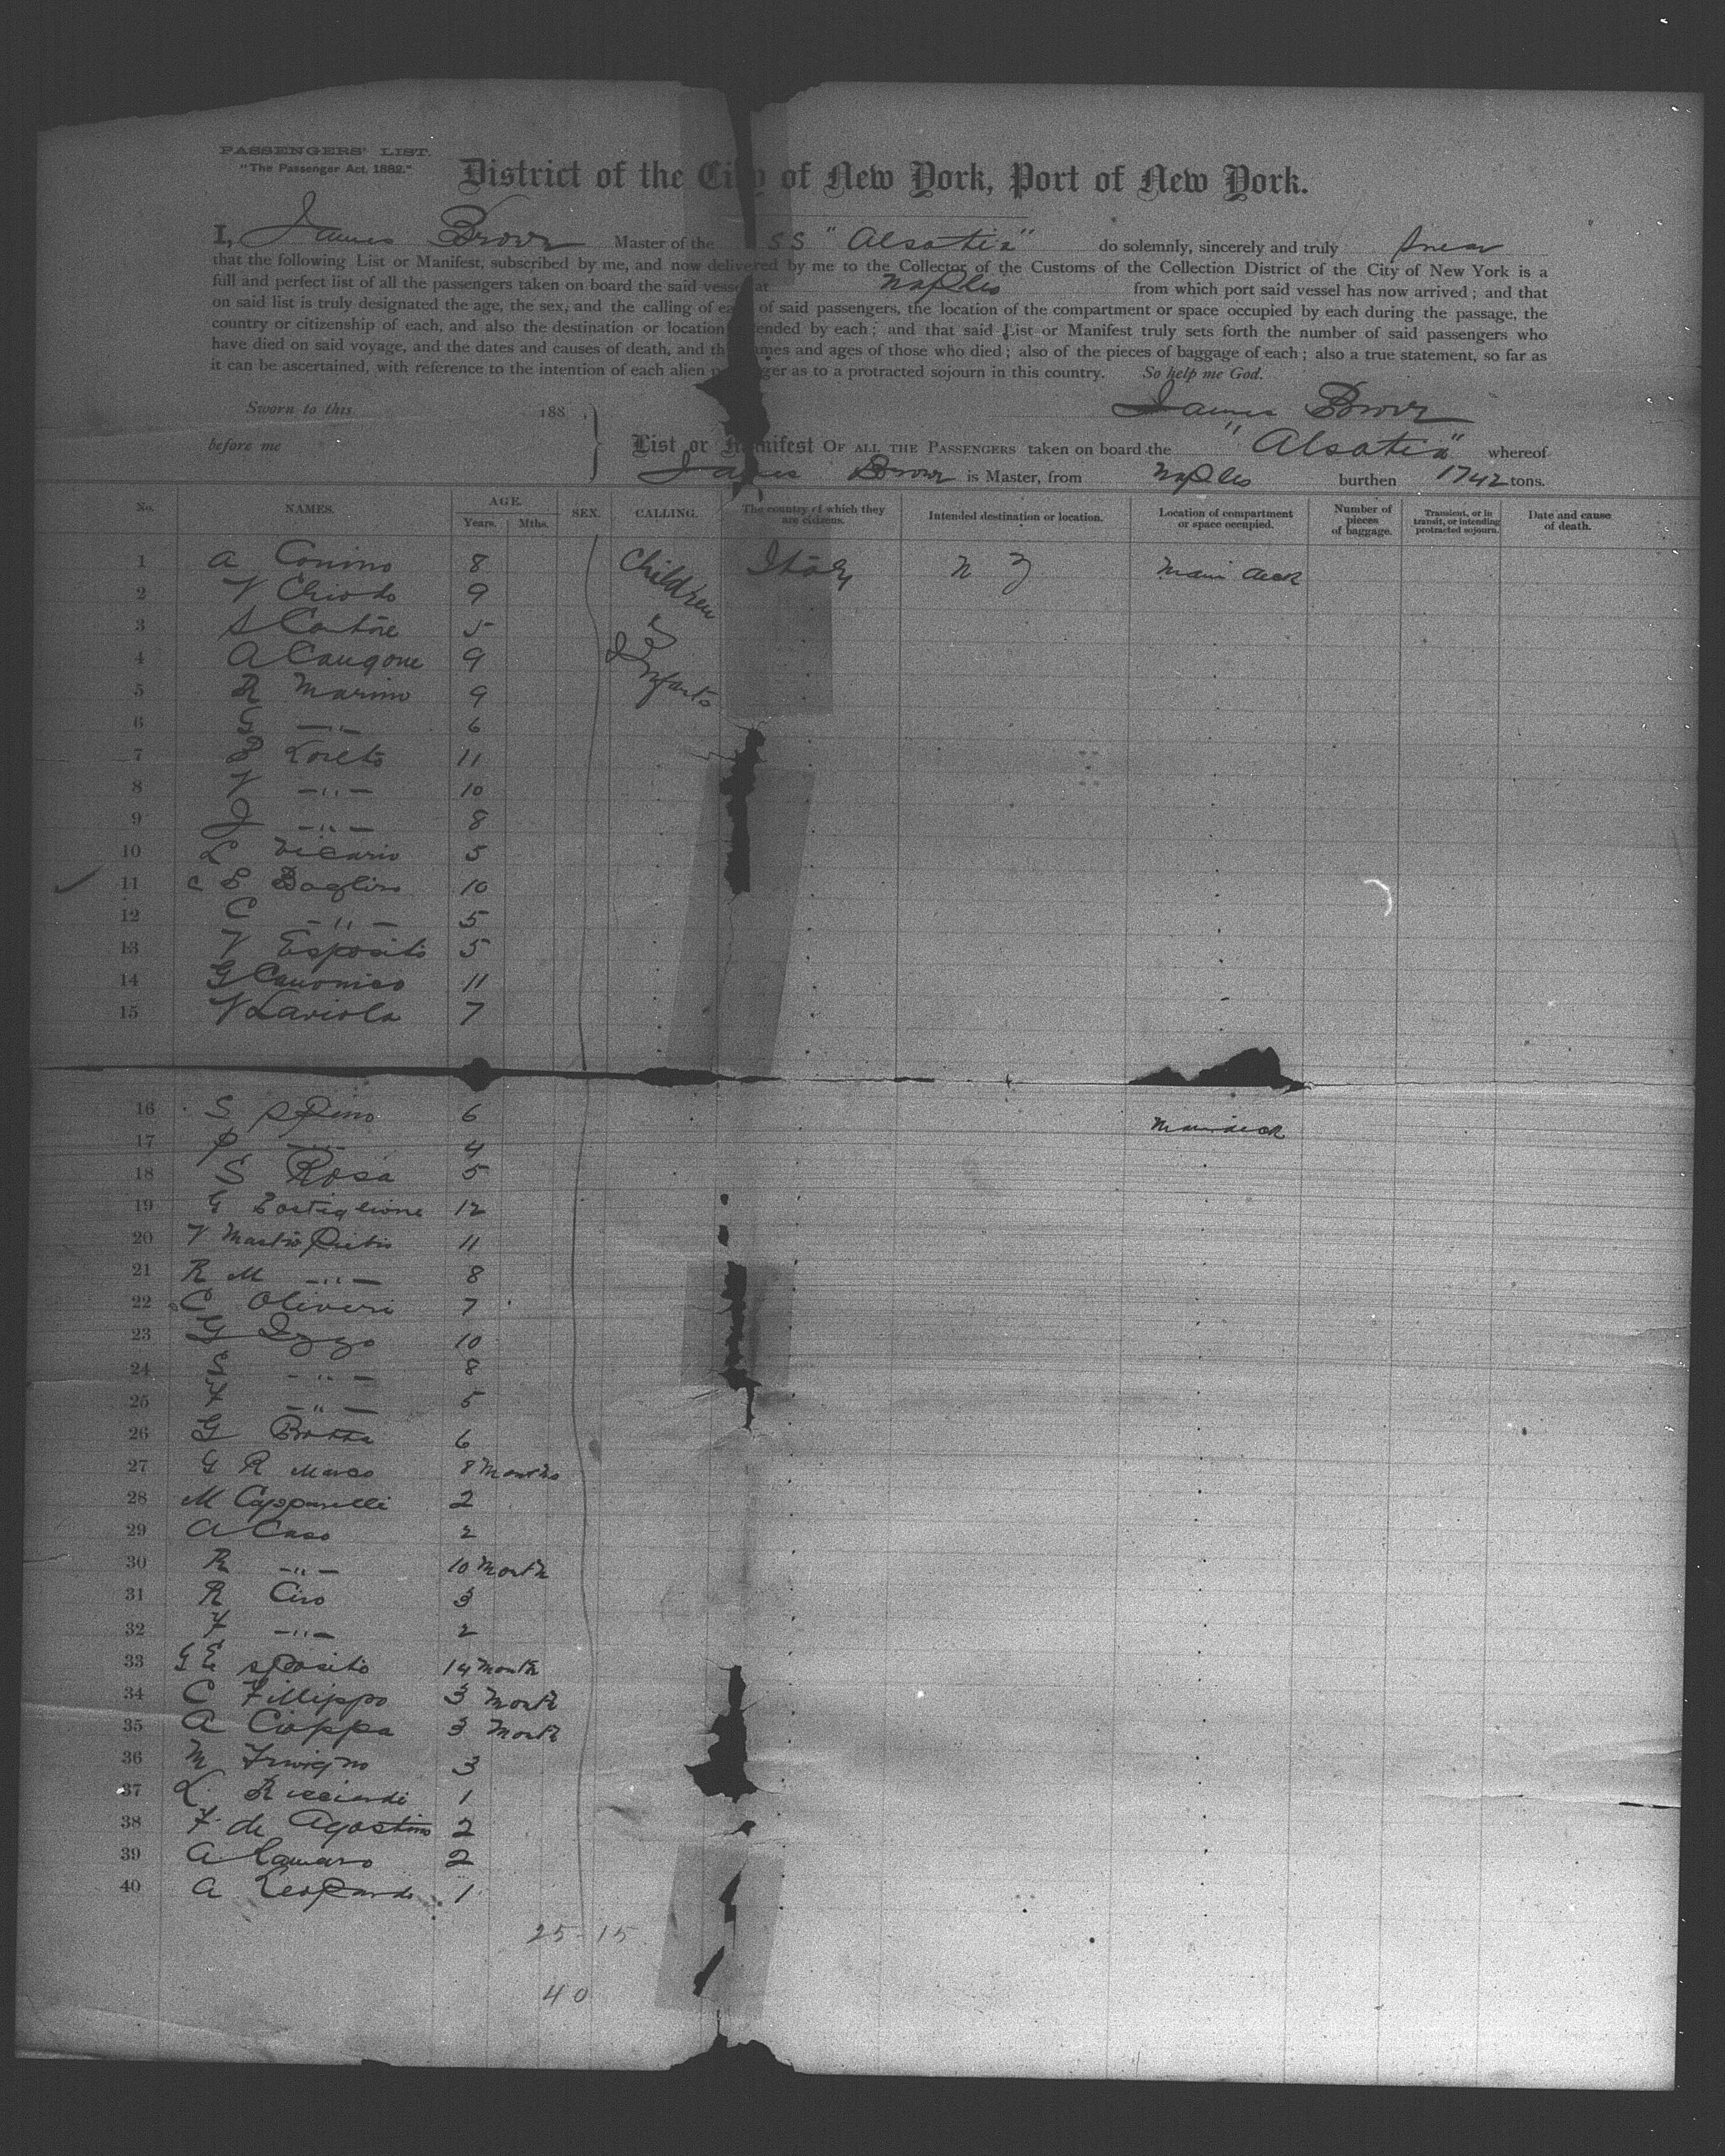 PASSENGERS' LIST.
"The Passenger Act, 1882."
District of the City of New York, Port of New York.
I, James Brown Master of the SS "Alsatia" do solemnly, sincerely and truly swear
that the following List or Manifest, subscribed by me, and now delivered by me to the Collector of the Customs of the Collection District of the City of New York is a
full and perfect list of all the passengers taken on board the said vessel at Naples from which port said vessel has now arrived; and that
on said list is truly designated the age, the sex, and the calling of each of said passengers, the location of the compartment or space occupied by each during the passage, the
country or citizenship of each, and also the destination or location intended by each; and that said List or Manifest truly sets forth the number of said passengers who
have died on said voyage, and the dates and causes of death, and the names and ages of those who died; also of the pieces of baggage of each; also a true statement, so far as
it can be ascertained, with reference to the intention of each alien passenger as to a protracted sojourn in this country. So help me God.
Sworn to this 188 .
James Brown
before me
List or Manifest OF ALL THE PASSENGERS taken on board the "Alsatia" whereof
James Brown is Master, from Naples burthen 1742 tons.
No. NAMES. AGE. Years. Mths. SEX. CALLING. The country of which they are citizens. Intended destination or location. Location of compartment or space occupied. Number of pieces of baggage. Transient, or in transit, or intending protracted sojourn. Date and cause of death.
1 A 8 Children Italy N Y Main deck
2 V Chiodo 9
3 S 5 &
4 A 9 Infants
5 R Marino 9
6 G —"— 6
7 Loreto 11
8 V —"— 10
9 J —"— 8
10 L Vicario 5
11 c 10
12 C —"— 5
13 V Esposito 5
14 G Canonico 11
15 V Laviola 7
16 S Spino 6 Main deck
17 P —"— 4
18 S Rosa 5
19 G 12
20 V Mastro Pietro 11
21 R M —"— 8
22 C Oliveri 7
23 G Izzo 10
24 —"— 8
25 F —"— 5
26 G 6
27 G R Marco 8 Months
28 M Capparelli 2
29 A Caso 2
30 R —"— 10 Month
31 R Ciro 3
32 F —"— 2
33 G Esposito 14 Month
34 C Fillippo 3 Month
35 A Cioppa 3 Month
36 M 3
37 L Ricciardi 1
38 F de Agostino 2
39 A 2
40 A Leopardo 1
25-15
40